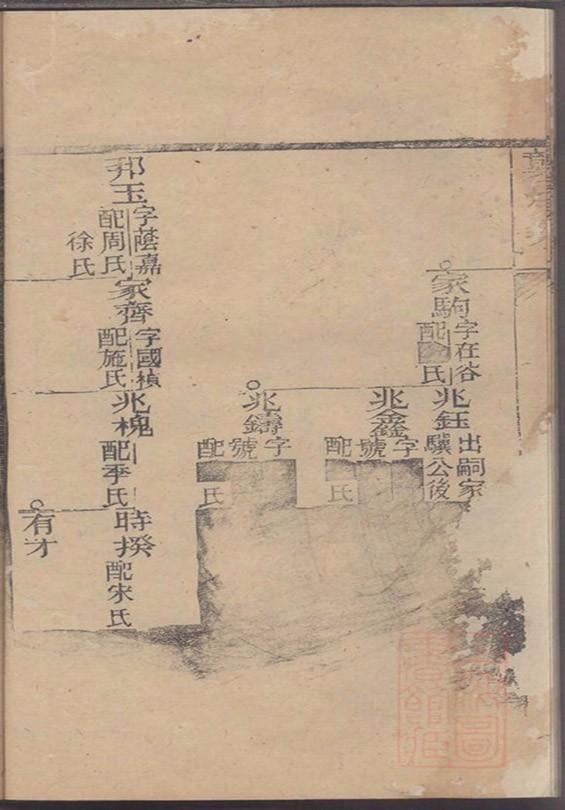 家駒
字在谷
配
氏
兆鈺
出嗣家
驥公後
兆鑫
字
號
配
氏
兆鑄
字
號
配
氏
邦玉
字蔭嘉
配周氏
徐氏
家齊
字國楨
配施氏
兆槐
配季氏
時揆
配宋氏
有才